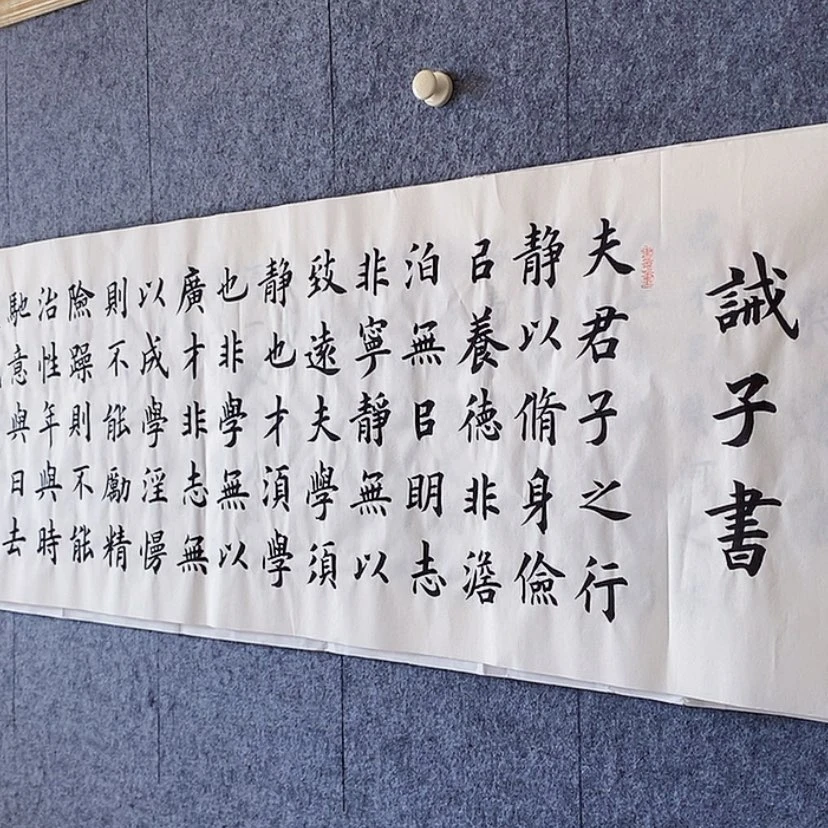 誡子書
夫君子之行
静以脩身儉
㠯養德非澹
泊無㠯明志
非寧靜無以
致遠夫學須
静也才須學
也非學無以
廣才非志無
以成學淫慢
則不能勵精
險躁則不能
治性年與時
馳意與日去